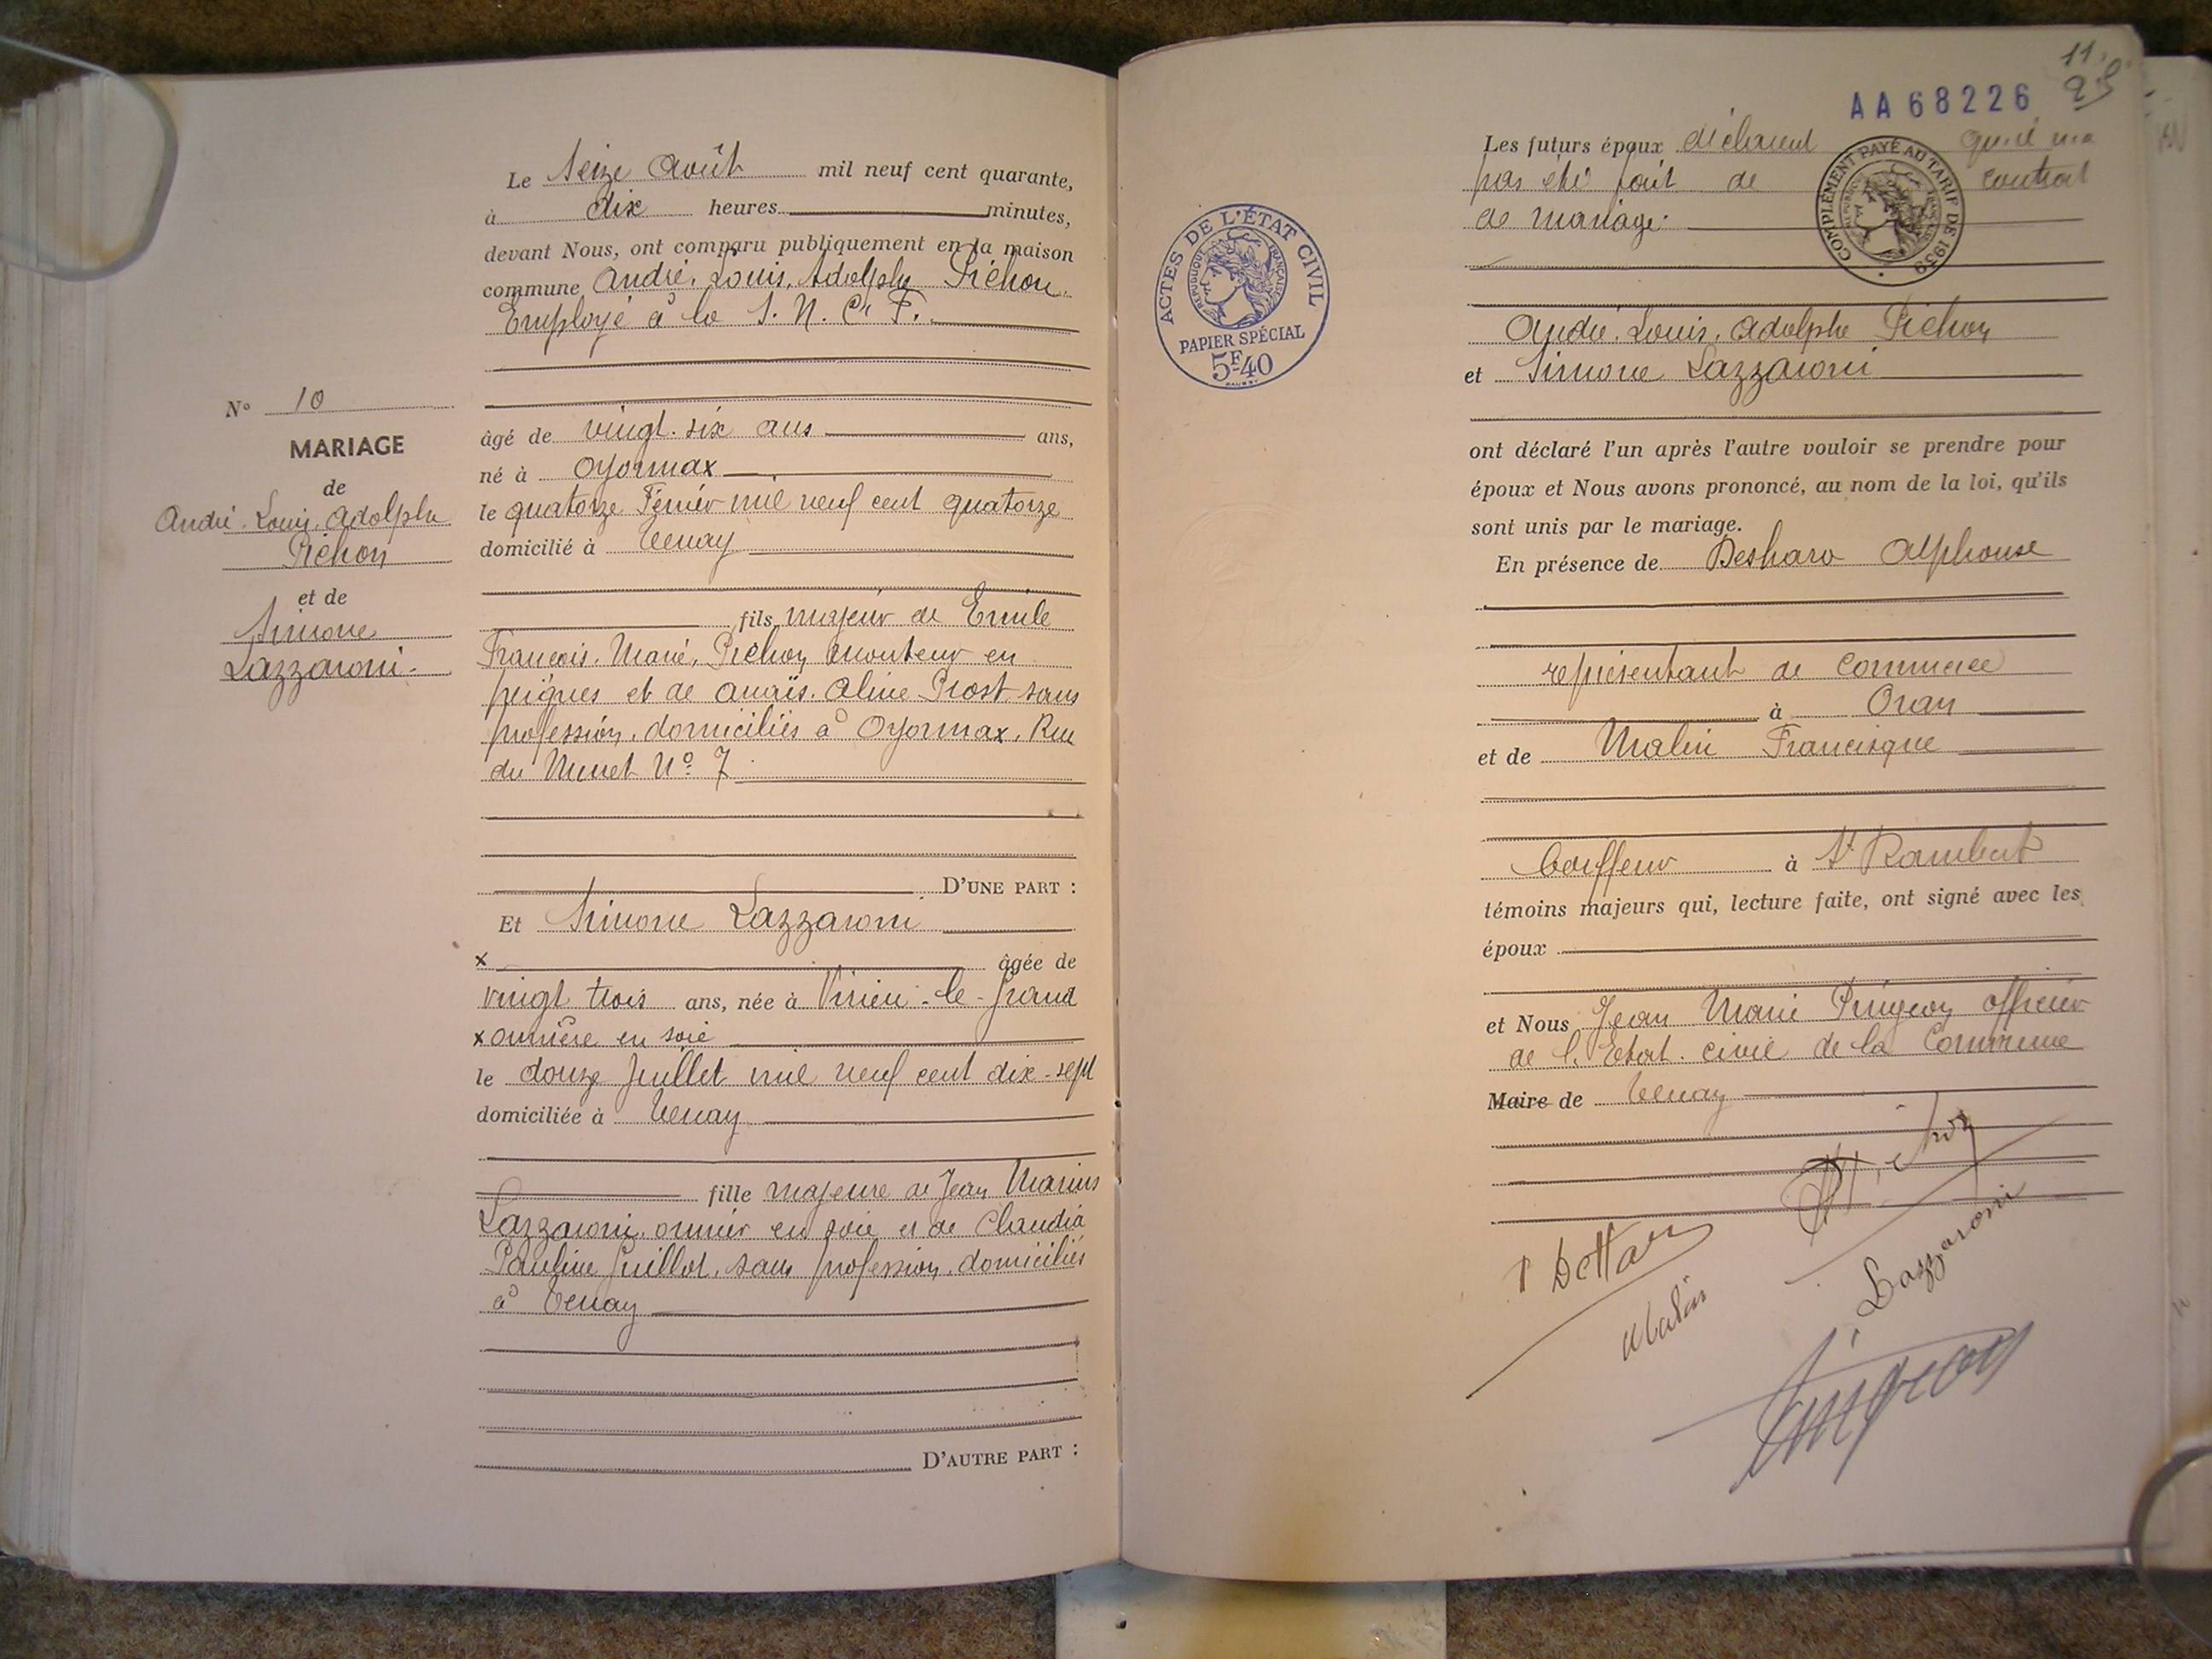 Le Seize Août mil neuf cent quarante,
à dix heures minutes,
devant Nous, ont comparu publiquement en la maison
commune André, Louis, Adolphe Pichon
Employé à la S. N. C. F.
N° 10
MARIAGE
de
André. Louis. Adolphe
Pichon
et de
Simone
Lazzaroni
âgé de vingt. six ans ans,
né à Oyonnax
le quatorze Février mil neuf cent quatorze
domicilié à Tenay
fils majeur de Emile
François. Marie, Pichon monteur en
peignes et de Anaïs. Aline Prost sans
profession. domiciliés à Oyonnax. Rue
du Muret N° 7
D'UNE PART :
Et Simone Lazzaroni
x âgée de
vingt trois ans, née à Virieu-le-Grand
x ouvrière en soie
le douze Juillet mil neuf cent dix-sept
domiciliée à Tenay
fille majeure de Jean Marius
Lazzaroni, ouvrier en soie et de Claudia
Pauline Guillot, sans profession, domiciliés
à Tenay
D'AUTRE PART :
11.
AA68226
Les futurs époux déclarent qu'il n'a
pas été fait de contrat
de mariage.
COMPLÉMENT PAYÉ AU TARIF DE 1939
ACTES DE L'ÉTAT CIVIL
RÉPUBLIQUE FRANÇAISE
PAPIER SPÉCIAL
5F40
André. Louis. Adolphe Pichon
et Simone Lazzaroni
ont déclaré l'un après l'autre vouloir se prendre pour
époux et Nous avons prononcé, au nom de la loi, qu'ils
sont unis par le mariage.
En présence de Alphonse
représentant de commerce
à Oran
et de Malin Francisque
Coiffeur à St Rambert
témoins majeurs qui, lecture faite, ont signé avec les
époux
et Nous Jean Marie Pingeon officier
de l'Etat. civil de la Commune
Maire de Tenay
Pichon
Malin
Lazzaroni
Pingeon